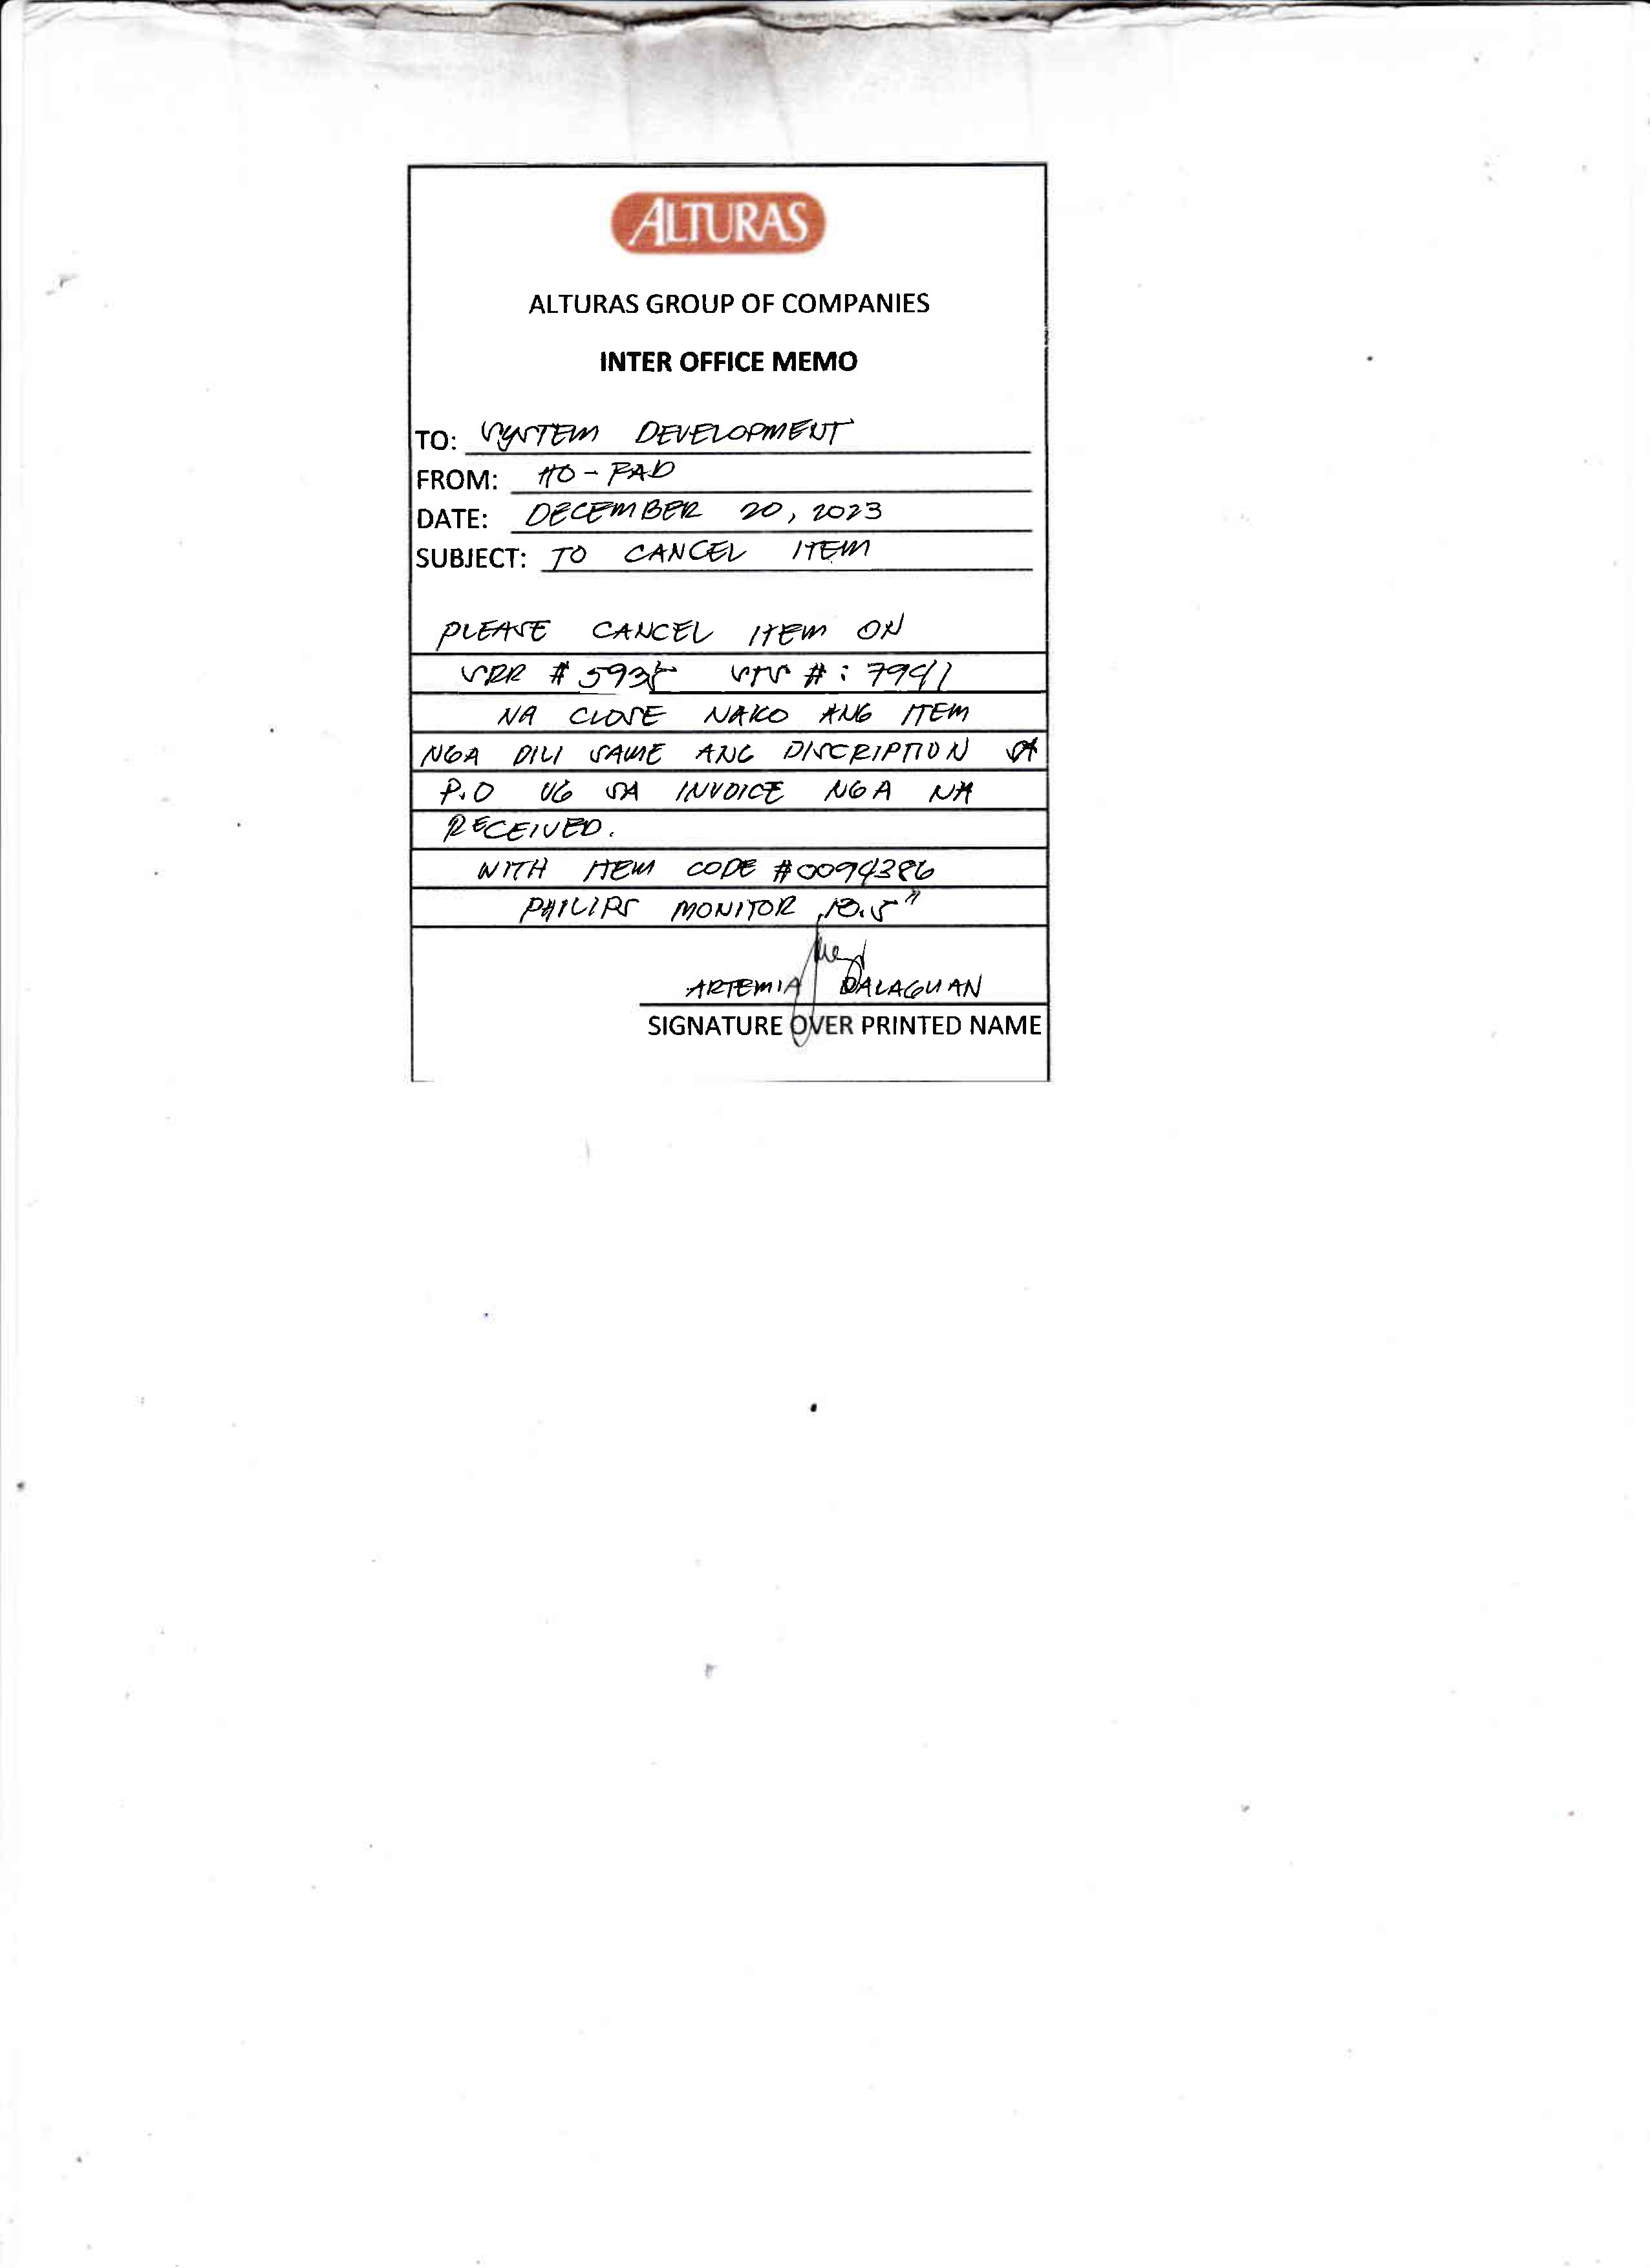 ALTURAS
ALTURAS GROUP OF COMPANIES
INTER OFFICE MEMO
TO: SYSTEM DEVELOPMENT
FROM: HO - FAD
DATE: DECEMBER 20, 2023
SUBJECT: TO CANCEL ITEM
PLEASE CANCEL ITEM ON
SRR # 5935 STS # : 7941
NA CLOSE NAKO ANG ITEM
NGA DILI SAME ANG DISCRIPTION SA
P.O UG SA INVOICE NGA NA
RECEIVED.
WITH ITEM CODE #0094386
PHILIPS MONITOR
ARTEMIA DALAGUAN
SIGNATURE OVER PRINTED NAME